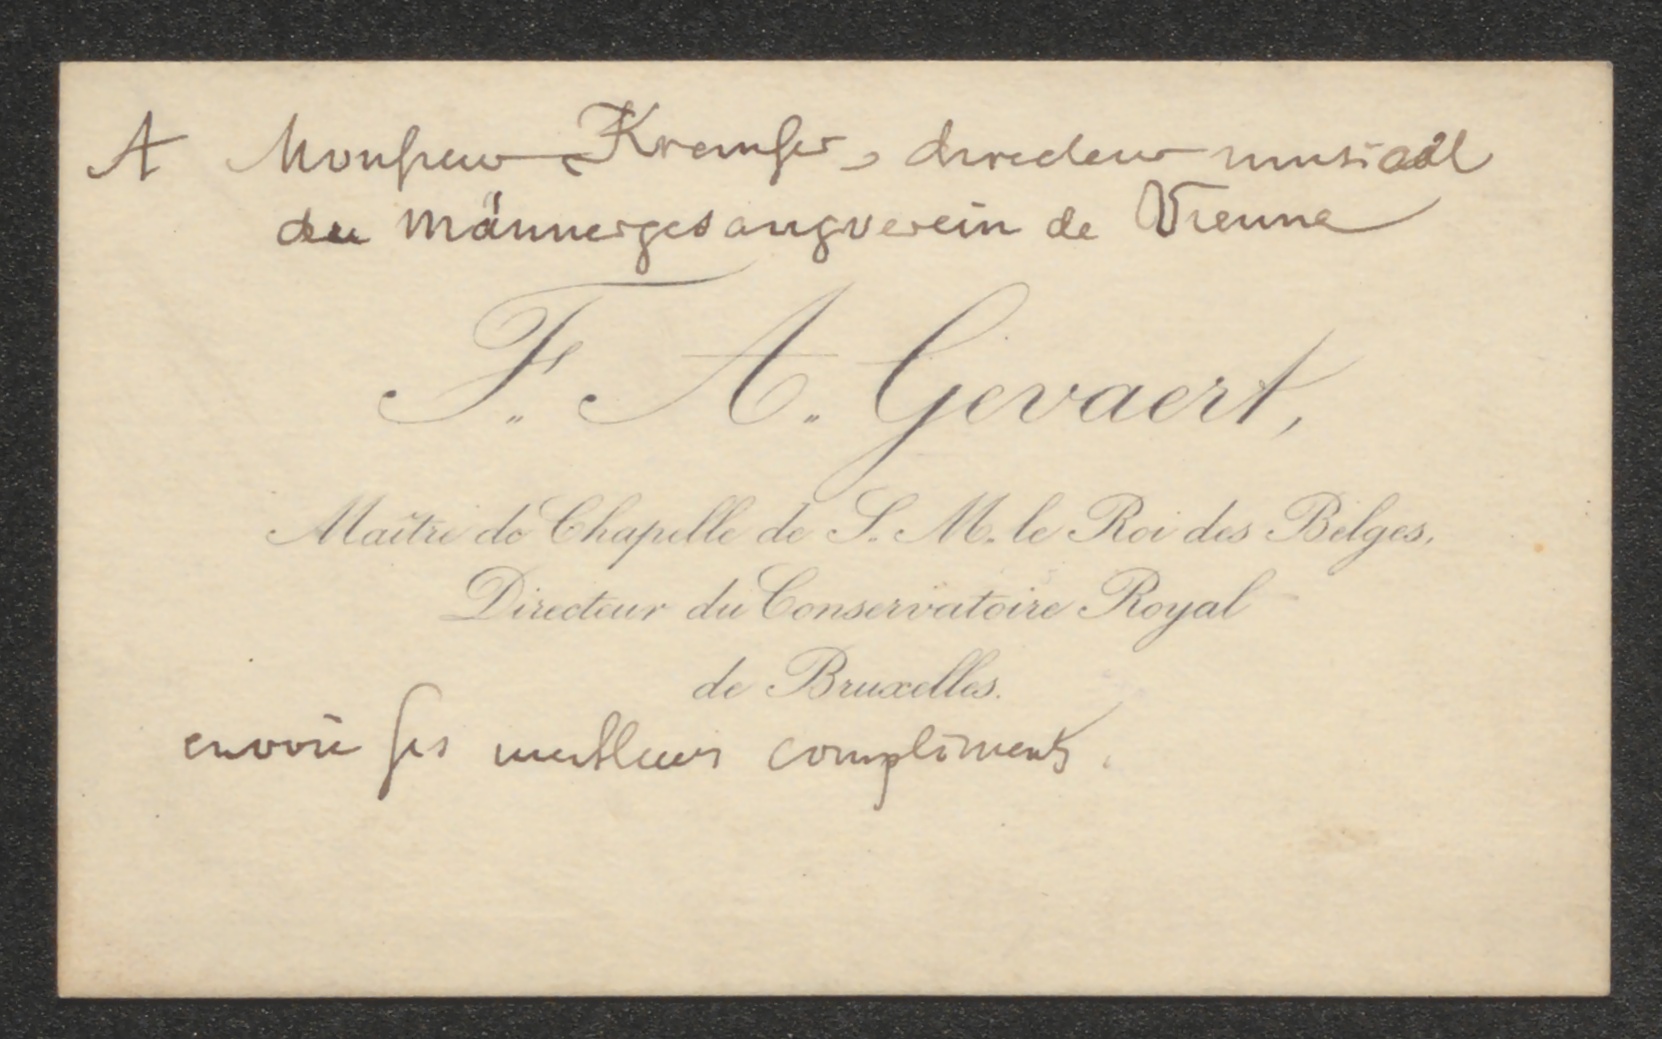 A Monsieur Kremser, directeur musical
du Männergesangverein de Vienne
F. A. Gevaert,
Maître de Chapelle de S. M. le Roi des Belges,
Directeur du Conservatoire Royal
de Bruxelles.
envoie ses meilleurs compliments.